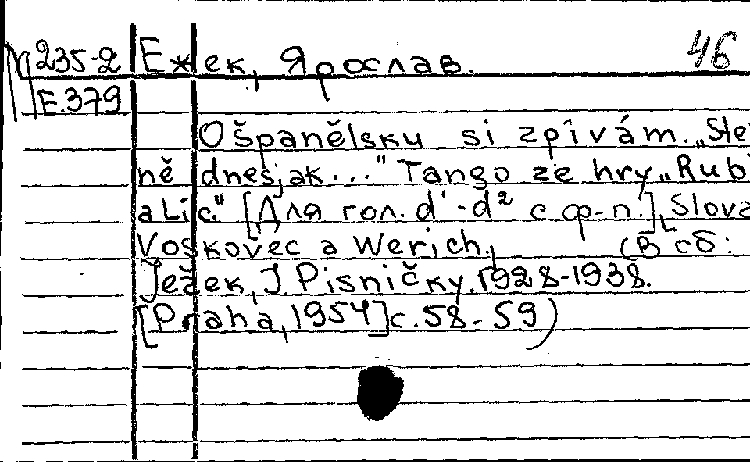 М 235-2 Ежек, Ярослав. 46
Е.379
O španělsku si zpívám. „Sle
ně dnes jak..." Tango ze hry „Rub
a Líc." [Для гол. d¹-d² с ф-п.], Slova
Voskovec a Werich, (В сб:
Ježek, J. Pisničky. 1928-1938.
[Praha, 1954] с. 58-59)